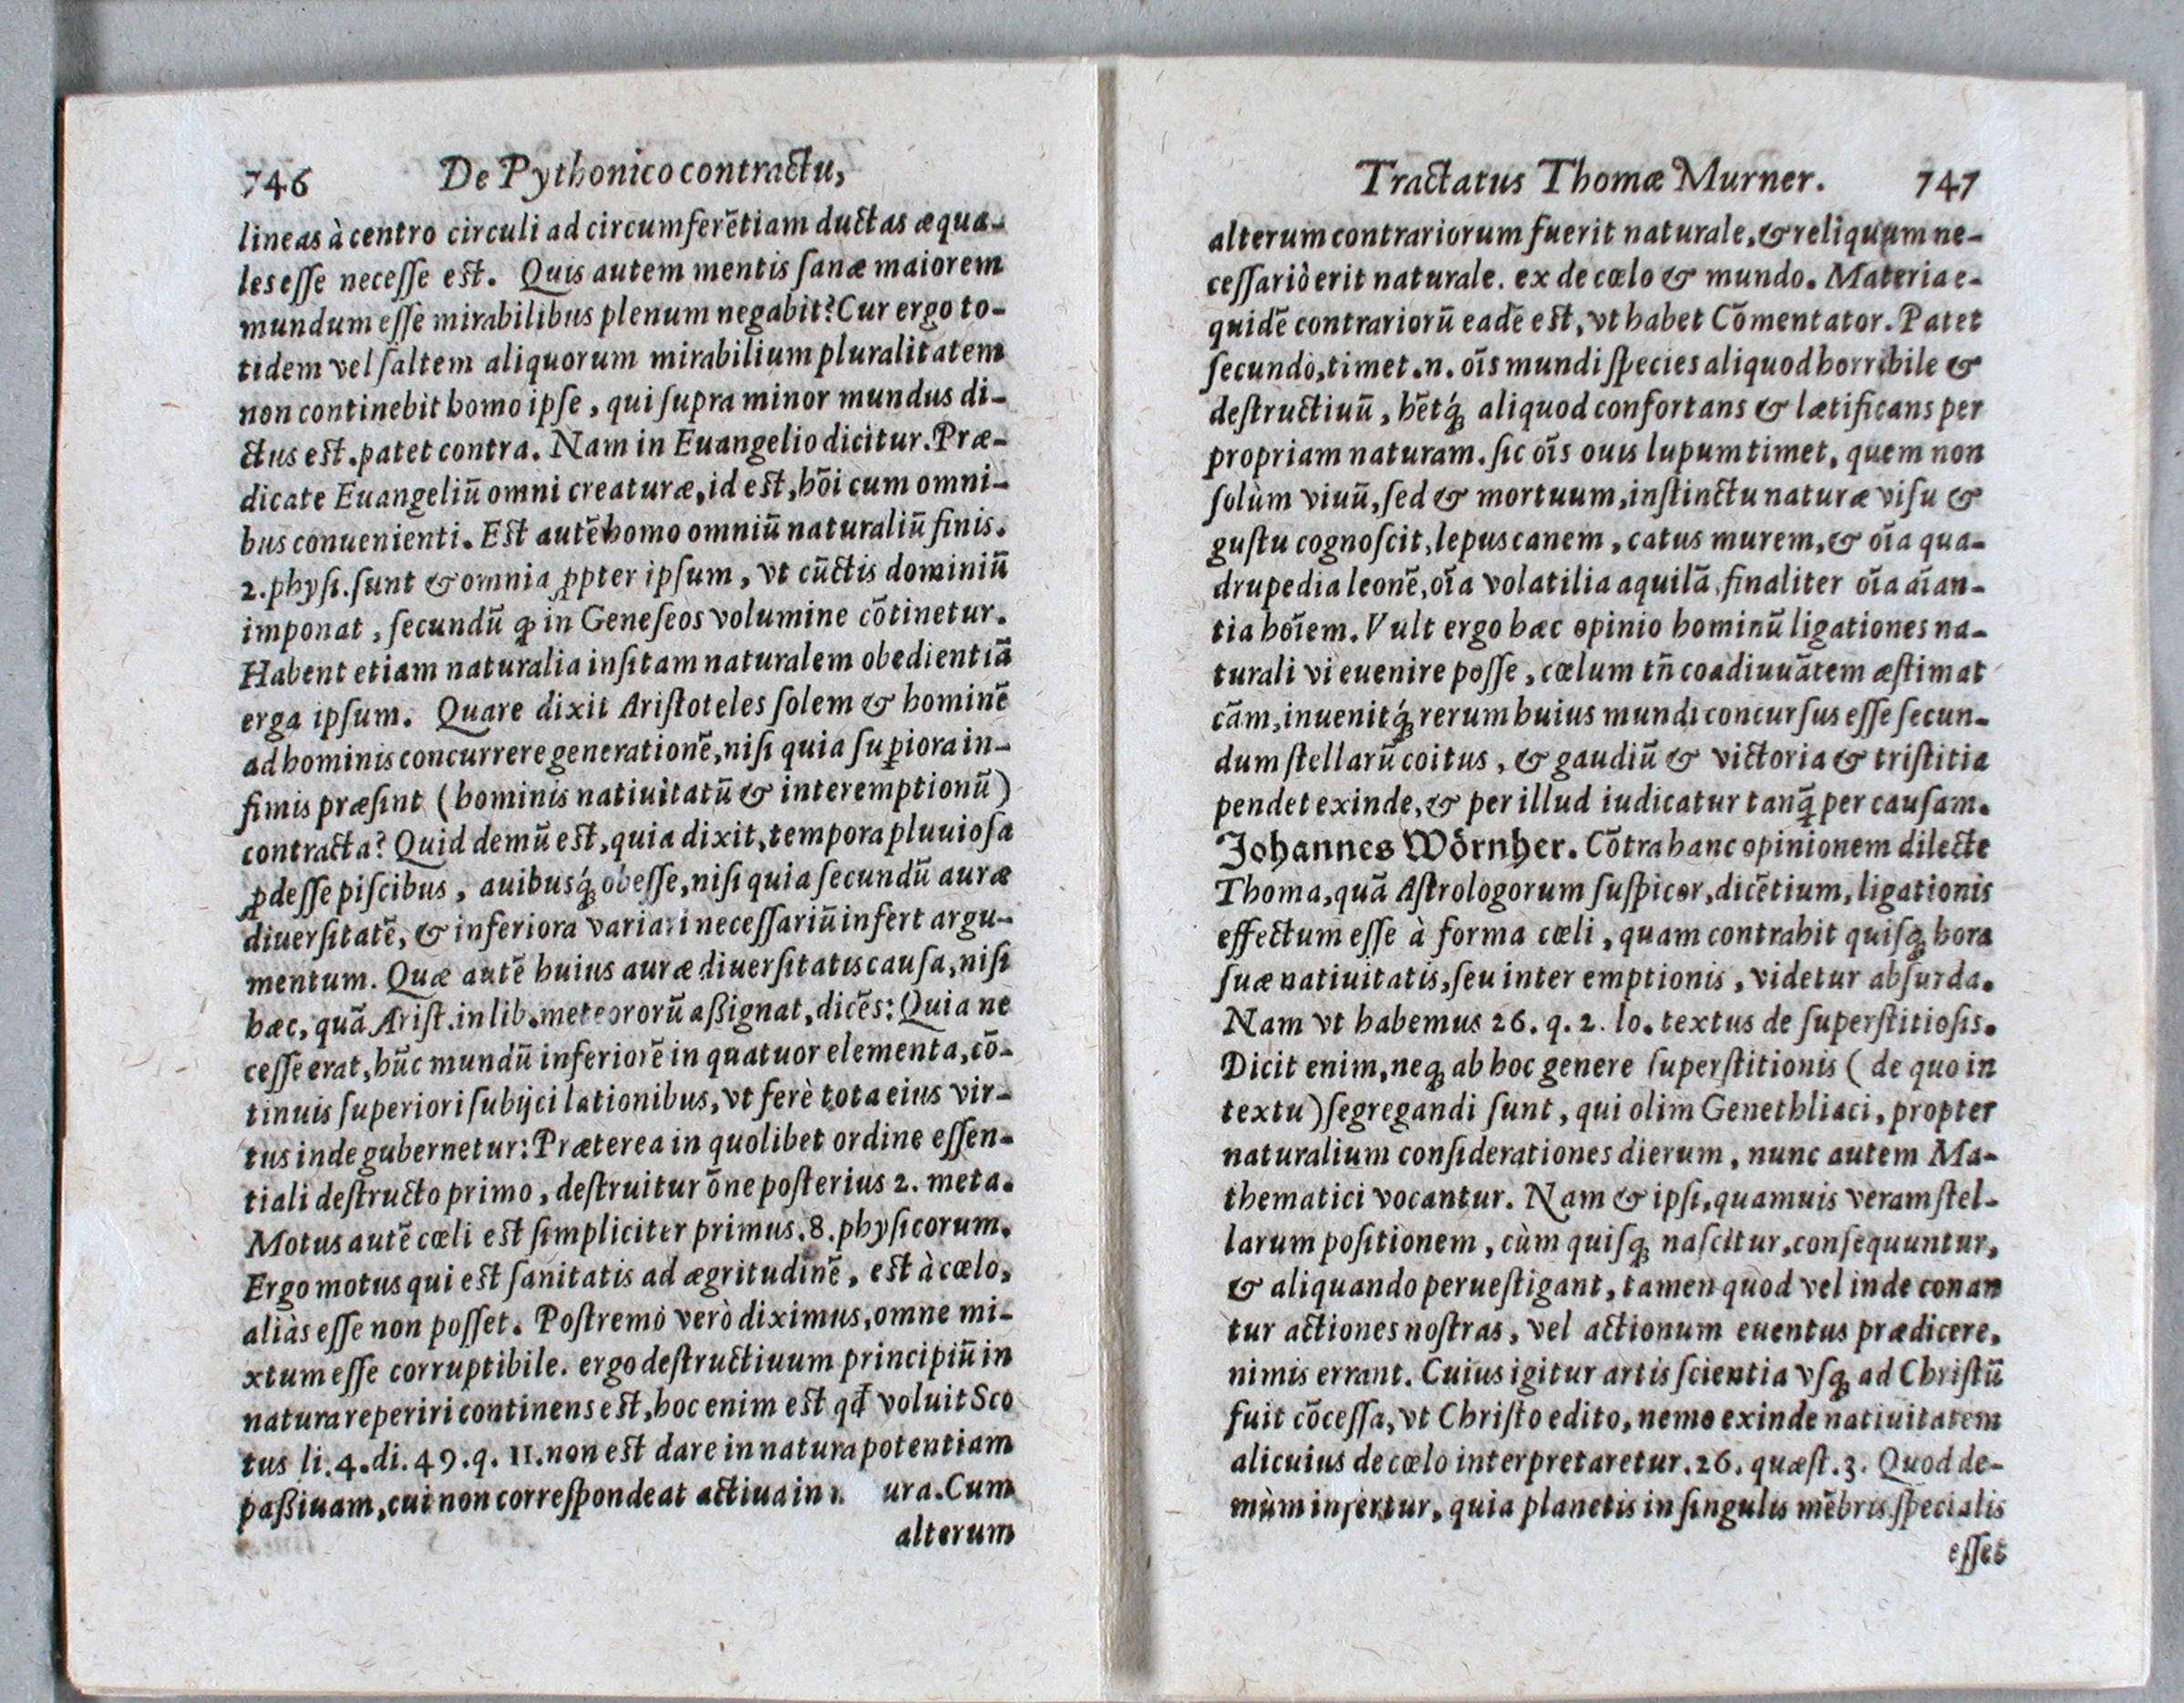 746 De Pythonico contractu,
lineas à centro circuli ad circumferẽtiam ductas æqua-
les eſſe neceſſe est. Quis autem mentis ſanæ maiorem
mundum eſſe mirabilibus plenum negabit? Cur ergo to-
tidem vel ſaltem aliquorum mirabilium pluralitatem
non continebit homo ipſe, qui ſupra minor mundus di-
ctus est. patet contra. Nam in Euangelio dicitur. Præ-
dicate Euangeliũ omni creaturæ, id est, hõi cum omni-
bus conuenienti. Est autẽ homo omniũ naturaliũ finis.
2. phyſi. ſunt & omnia ꝓpter ipſum, vt cũctis dominiũ
imponat, ſecundũ ꝙ in Geneſeos volumine cõtinetur.
Habent etiam naturalia inſitam naturalem obedientiã
erga ipſum. Quare dixit Ariſtoteles ſolem & hominẽ
ad hominis concurrere generationẽ, niſi quia ſuꝑiora in-
fimis præſint (hominis natiuitatũ & interemptionũ)
contracta? Quid demũ est, quia dixit, tempora pluuioſa
ꝓdeſſe piſcibus, auibusq́; obeſſe, niſi quia ſecundũ auræ
diuerſitatẽ, & inferiora variari neceſſariũ infert argu-
mentum. Quæ autẽ huius auræ diuerſitatis cauſa, niſi
hæc, quã Ariſt. in lib. meteororũ aßignat, dicẽs: Quia ne
ceſſe erat, hũc mundũ inferiorẽ in quatuor elementa, cõ-
tinuis ſuperiori ſubijci lationibus, vt ferè tota eius vir-
tus inde gubernetur: Præterea in quolibet ordine eſſen-
tiali deſtructo primo, deſtruitur õne poſterius 2. meta.
Motus autẽ cœli est ſimpliciter primus. 8. phyſicorum.
Ergo motus qui est ſanitatis ad ægritudinẽ, est à cœlo,
aliàs eſſe non poſſet. Poſtremò verò diximus, omne mi-
xtum eſſe corruptibile. ergo deſtructiuum principiũ in
natura reperiri continens est, hoc enim est qđ voluit Sco
tus li. 4. di. 49. q. 11. non est dare in natura potentiam
paßiuam, cui non correſpondeat actiua in n ura. Cum
alterum
Tractatus Thomæ Murner. 747
alterum contrariorum fuerit naturale, & reliquum ne-
ceſſariò erit naturale. ex de cœlo & mundo. Materia e-
quidẽ contrariorũ eadẽ est, vt habet Cõmentator. Patet
ſecundò, timet. n. oĩs mundi ſpecies aliquod horribile &
deſtructiuũ, hẽtq́; aliquod confortans & lætificans per
propriam naturam. ſic oĩs ouis lupum timet, quem non
ſolùm viuũ, ſed & mortuum, inſtinctu naturæ viſu &
guſtu cognoſcit, lepus canem, catus murem, & oĩa qua-
drupedia leonẽ, oĩa volatilia aquilã, finaliter oĩa aĩan-
tia hoĩem. Vult ergo hæc opinio hominũ ligationes na-
turali vi euenire poſſe, cœlum tñ coadiuuãtem æſtimat
cãm, inuenitq́; rerum huius mundi concurſus eſſe ſecun-
dum ſtellarũ coitus, & gaudiũ & victoria & triſtitia
pendet exinde, & per illud iudicatur tanq̃ per cauſam.
Johannes Wörnher. Cõtra hanc opinionem dilecte
Thoma, quã Aſtrologorum ſuſpicor, dicẽtium, ligationis
effectum eſſe à forma cœli, quam contrahit quiſq; hora
ſuæ natiuitatis, ſeu inter emptionis, videtur abſurda.
Nam vt habemus 26. q. 2. lo. textus de ſuperſtitioſis.
Dicit enim, neq; ab hoc genere ſuperſtitionis ( de quo in
textu) ſegregandi ſunt, qui olim Genethliaci, propter
naturalium conſiderationes dierum, nunc autem Ma-
thematici vocantur. Nam & ipſi, quamuis veram ſtel-
larum poſitionem, cùm quiſq; naſcitur, conſequuntur,
& aliquando perueſtigant, tamen quod vel inde conan
tur actiones noſtras, vel actionum euentus prædicere,
nimis errant. Cuius igitur artis ſcientia vſq; ad Chriſtũ
fuit cõceſſa, vt Chriſto edito, nemo exinde natiuitatem
alicuius de cœlo interpretaretur. 26. quæſt. 3. Quod de-
mùm infertur, quia planetis in ſingulis mẽbris ſpecialis
eſſet